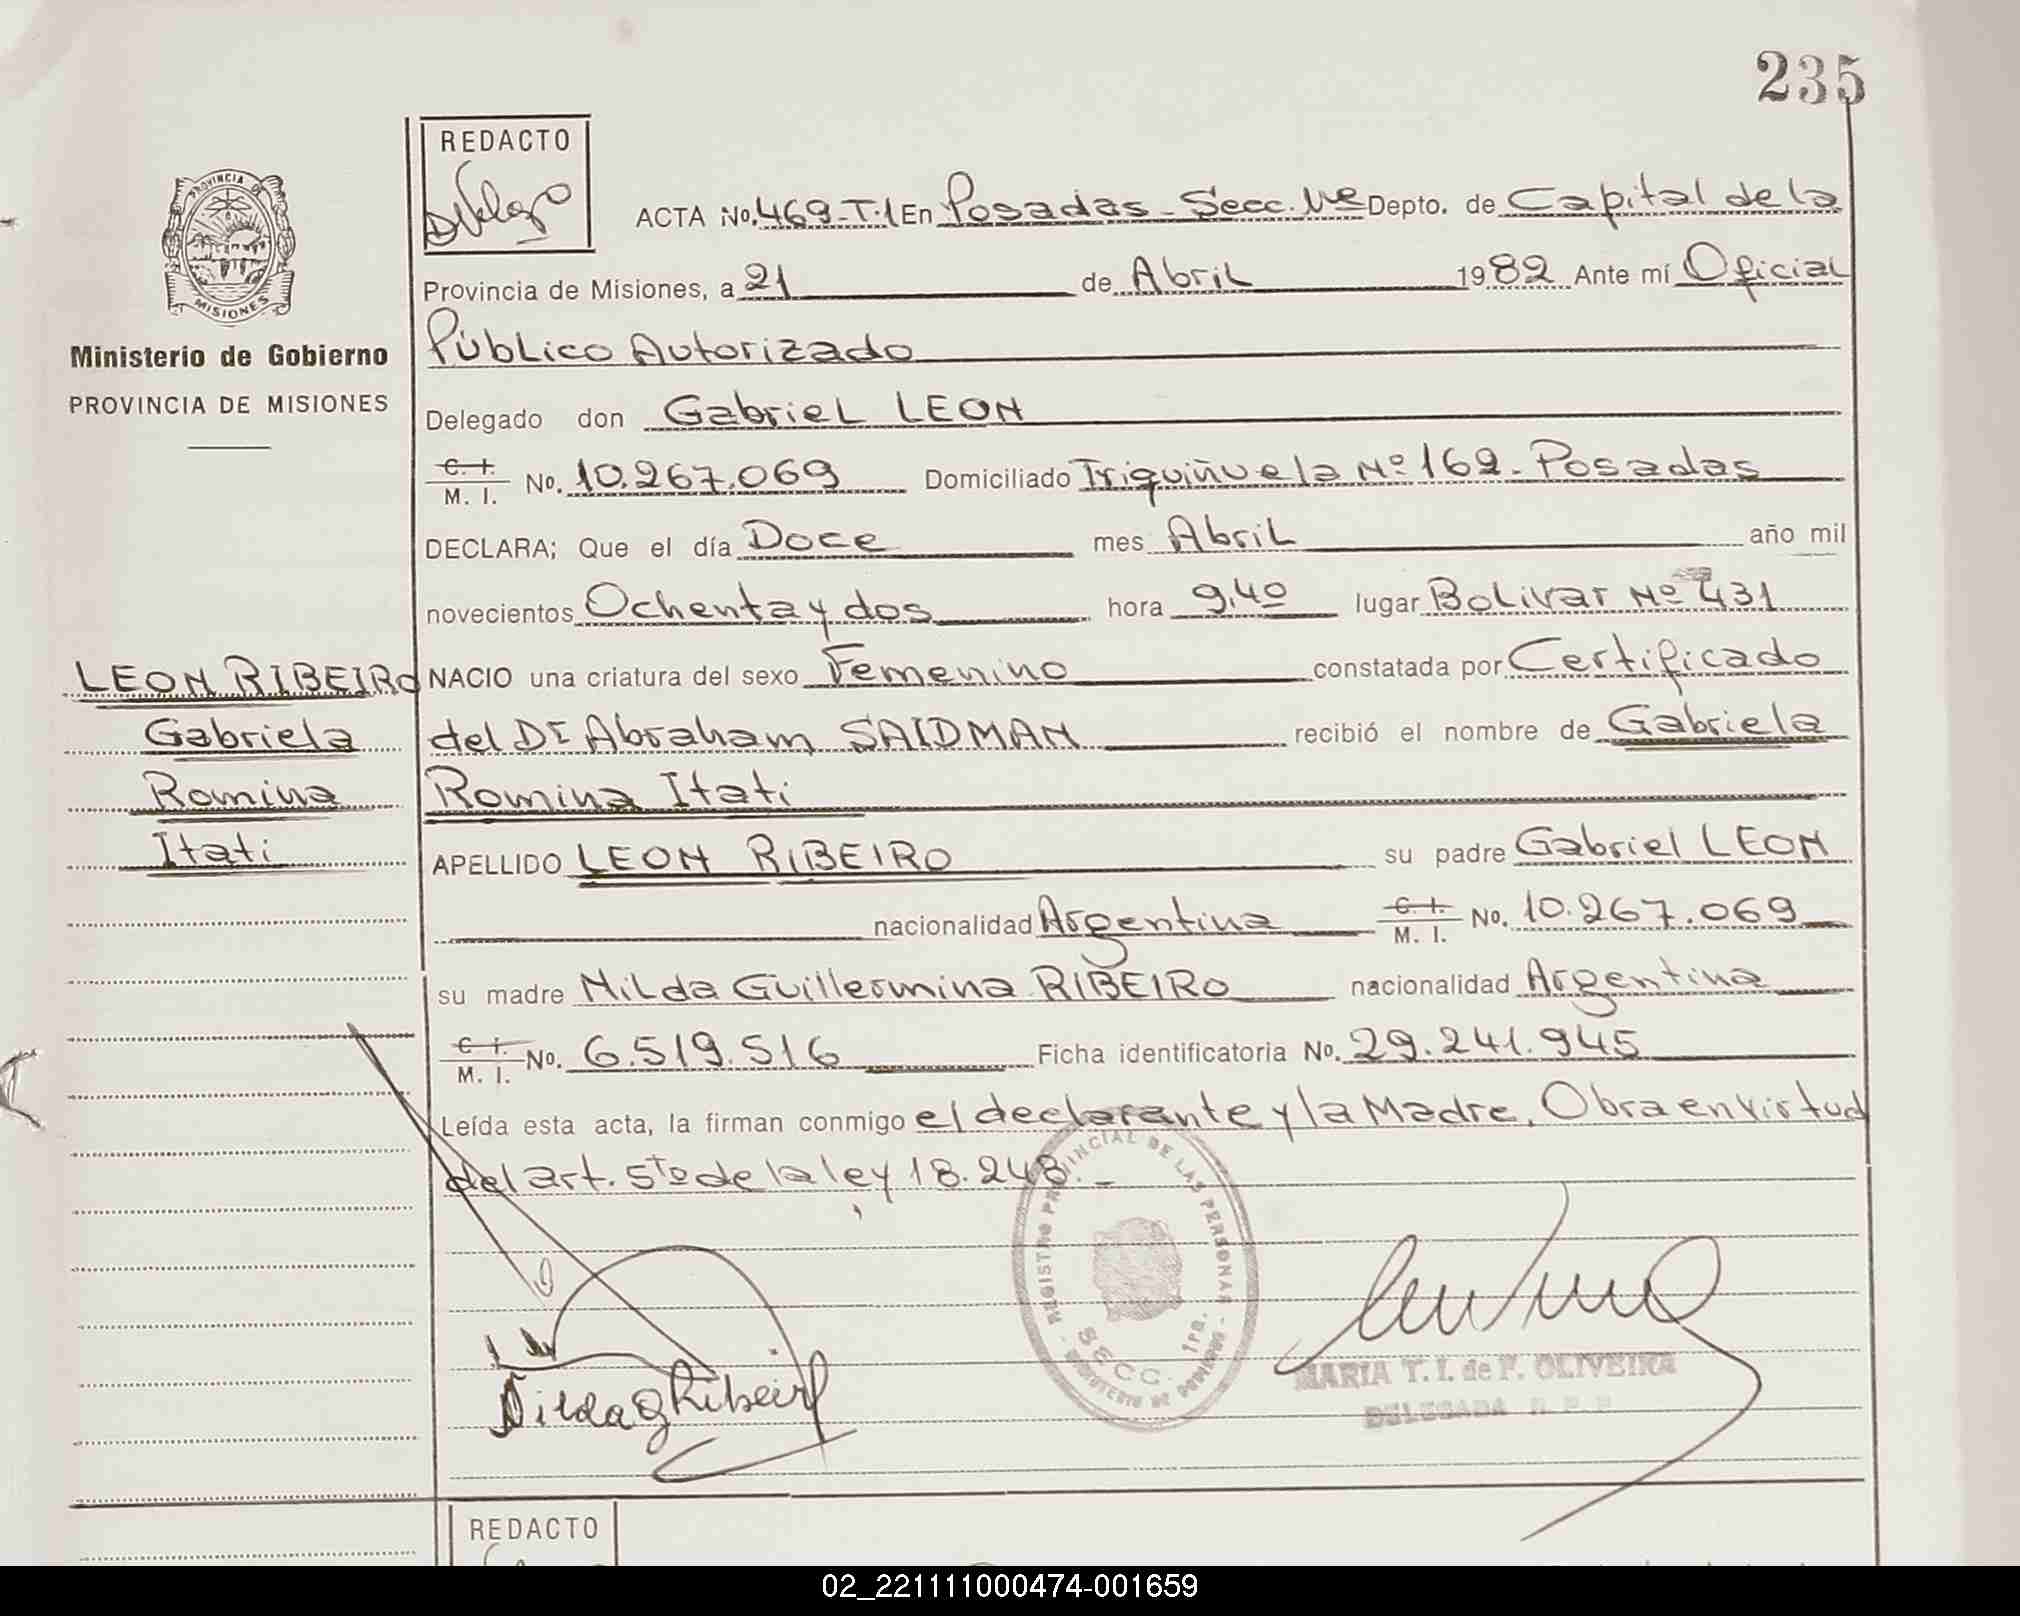 235
REDACTO
PROVINCIA DE
MISIONES
Ministerio de Gobierno
PROVINCIA DE MISIONES
ACTA No. 469-T.1 En Posadas - Secc. Depto. de Capital de la
Provincia de Misiones, a 21 de Abril 1982 Ante mí Oficial
Público Autorizado
Delegado don Gabriel LEON
C. I. M. I. No. 10.267.069 Domiciliado Triquiñuela Nº 169 - Posadas
DECLARA; Que el día Doce mes Abril año mil
novecientos Ochenta y dos hora 9,40 lugar Bolivar Nº 431
NACIO una criatura del sexo Femenino constatada por Certificado
del Dr Abraham SAIDMAN recibió el nombre de Gabriela
Romina Itati
APELLIDO LEON RIBEIRO su padre Gabriel LEON
nacionalidad Argentina C. I. M. I. No. 10.267.069
su madre Nilda Guillermina RIBEIRO nacionalidad Argentina
C. I. M. I. No. 6.519.516 Ficha identificatoria No. 29.241.945
Leída esta acta, la firman conmigo el declarante y la Madre. Obra en virtud
del art. 5to de la ley 18.248.-
LEON RIBEIRO
Gabriela
Romina
Itati
REGISTRO PROVINCIAL DE LAS PERSONAS
SECC. 1ra.
Nilda G Ribeiro
MARIA T. I. de F. OLIVEIRA
DELEGADA R. P. P.
REDACTO
02_221111000474-001659